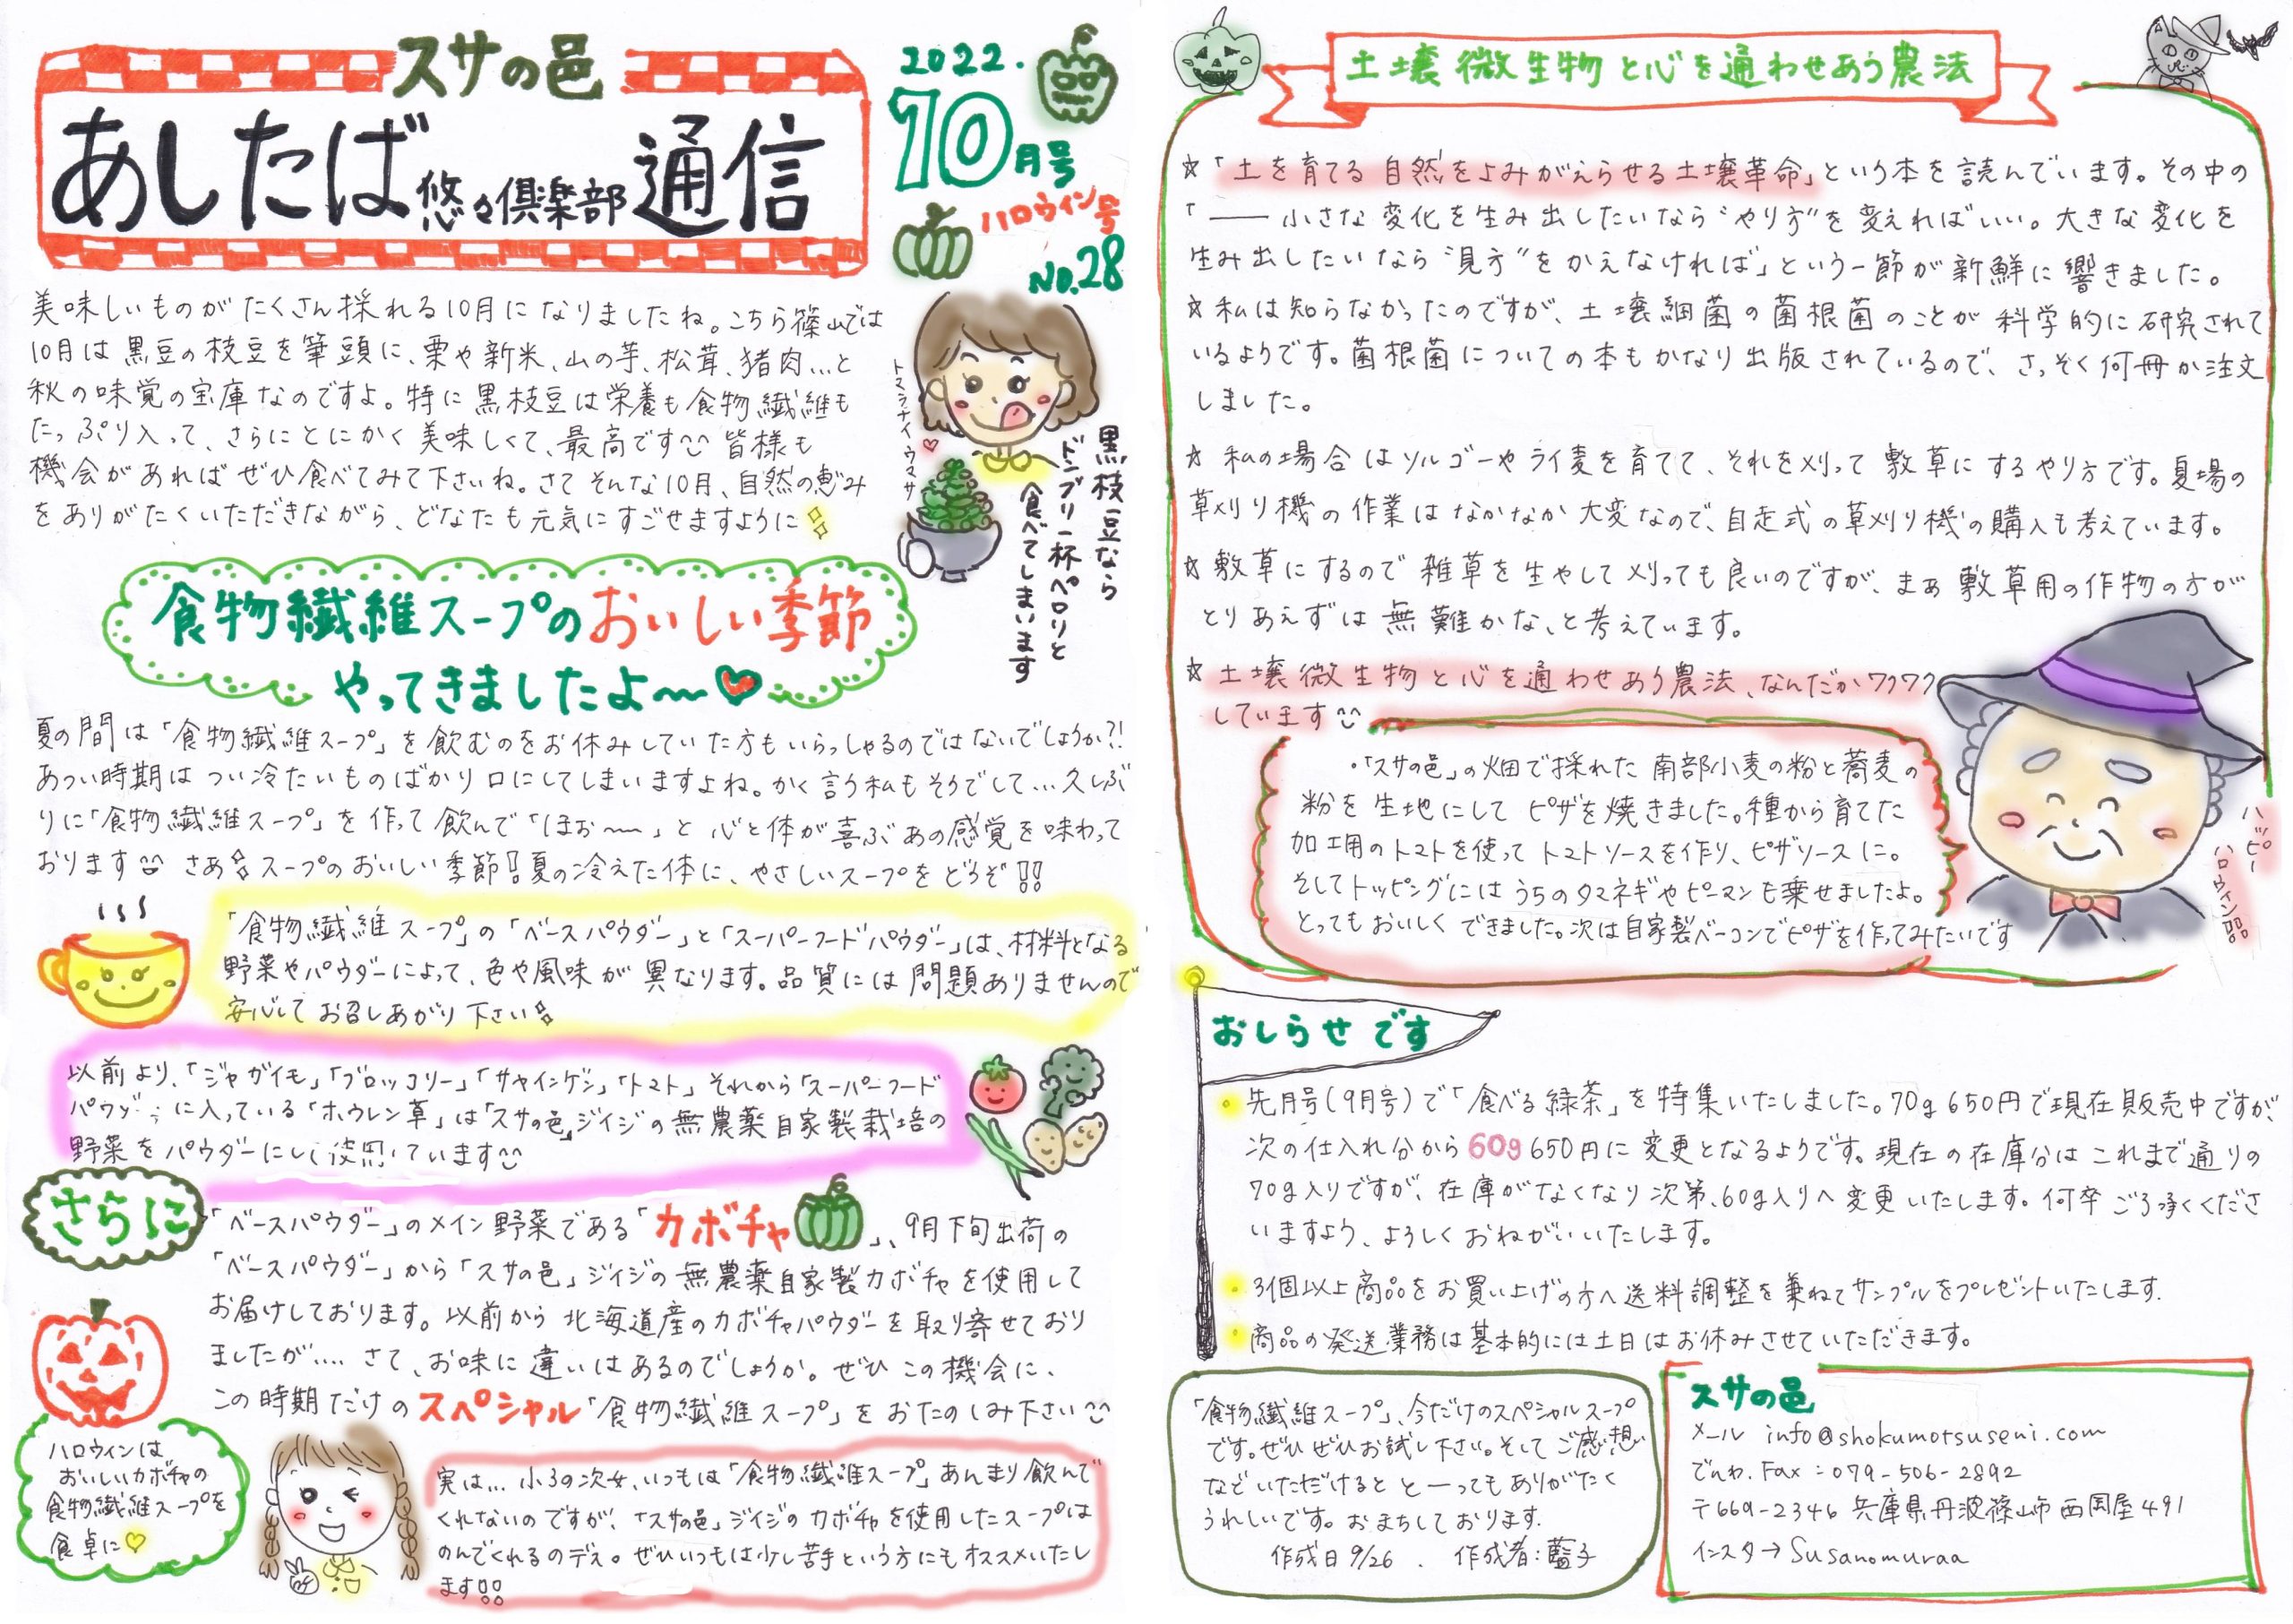 スサの邑
あしたば悠々倶楽部通信
2022.
10月号
ハロウィン号
No.28
美味しいものがたくさん採れる10月になりましたね。こちら篠山では
10月は黒豆の枝豆を筆頭に、栗や新米、山の芋、松茸、猪肉…と
秋の味覚の宝庫なのですよ。特に黒枝豆は栄養も食物繊維も
たっぷり入って、さらにとにかく美味しくて、最高です 皆様も
機会があればぜひ食べてみて下さいね。さてそんな10月、自然の恵み
をありがたくいただきながら、どなたも元気にすごせますように
トマラナイウマサ
黒枝豆なら
ドンブリ一杯ペロリと
食べてしまいます
食物繊維スープのおいしい季節
やってきましたよ〜♥
夏の間は「食物繊維スープ」を飲むのをお休みしていた方もいらっしゃるのではないでしょうか?!
あつい時期はつい冷たいものばかり口にしてしまいますよね。かく言う私もそうでして…久しぶ
りに「食物繊維スープ」を作って飲んで「ほお〜〜」と心と体が喜ぶあの感覚を味わって
おります さあ スープのおいしい季節!夏の冷えた体に、やさしいスープをどうぞ!!
「食物繊維スープ」の「ベースパウダー」と「スーパーフードパウダー」は、材料となる
野菜やパウダーによって、色や風味が異なります。品質には問題ありませんので
安心してお召しあがり下さい
以前より、「ジャガイモ」「ブロッコリー」「サヤインゲン」「トマト」それから「スーパーフード
パウダーに入っている「ホウレン草」は「スサの邑」ジイジの無農薬自家製栽培の
野菜をパウダーにして使用しています
さらに
「ベースパウダー」のメイン野菜である「カボチャ」、9月下旬出荷の
「ベースパウダー」から「スサの邑」ジイジの無農薬自家製カボチャを使用して
お届けしております。以前から北海道産のカボチャパウダーを取り寄せており
ましたが…. さて、お味に違いはあるのでしょうか。ぜひこの機会に、
この時期だけのスペシャル「食物繊維スープ」をおたのしみ下さい
ハロウィンは
おいしいカボチャの
食物繊維スープを
食卓に♡
実は… 小3の次女、いつもは「食物繊維スープ」あんまり飲んで
くれないのですが、「スサの邑」ジイジのカボチャを使用したスープは
のんでくれるのデス。ぜひいつもは少し苦手という方にもオススメいたし
ます!!
土壌微生物と心を通わせあう農法
☆「土を育てる 自然をよみがえらせる土壌革命」という本を読んでいます。その中の
「――小さな変化を生み出したいなら“やり方”を変えればいい。大きな変化を
生み出したいなら“見方”をかえなければ」という一節が新鮮に響きました。
☆私は知らなかったのですが、土壌細菌の菌根菌のことが科学的に研究されて
いるようです。菌根菌についての本もかなり出版されているので、さっそく何冊か注文
しました。
☆ 私の場合はソルゴーやライ麦を育てて、それを刈って敷草にするやり方です。夏場の
草刈り機の作業はなかなか大変なので、自走式の草刈り機の購入も考えています。
☆敷草にするので雑草を生やして刈っても良いのですが、まあ敷草用の作物の方が
とりあえずは無難かな、と考えています。
☆ 土壌微生物と心を通わせあう農法、なんだかワクワク
しています
・「スサの邑」の畑で採れた南部小麦の粉と蕎麦の
粉を生地にしてピザを焼きました。種から育てた
加工用のトマトを使ってトマトソースを作り、ピザソースに。
そしてトッピングにはうちのタマネギやピーマンも乗せましたよ。
とってもおいしくできました。次は自家製ベーコンでピザを作ってみたいです
ハッピー
ハロウィン!!
おしらせです
・先月号(9月号)で「食べる緑茶」を特集いたしました。70g650円で現在販売中ですが、
次の仕入れ分から60g650円に変更となるようです。現在の在庫分はこれまで通りの
70g入りですが、在庫がなくなり次第、60g入りへ変更いたします。何卒ご了承くださ
いますよう、よろしくおねがいいたします。
・3個以上商品をお買い上げの方へ送料調整を兼ねてサンプルをプレゼントいたします.
・商品の発送業務は基本的には土日はお休みさせていただきます。
「食物繊維スープ」、今だけのスペシャルスープ
です。ぜひぜひお試し下さい。そしてご感想
などいただけるとと―ってもありがたく
うれしいです。おまちしております.
作成日9/26. 作成者:藍子
スサの邑
メール info@shokumotsuseni.com
でんわ.Fax:079-506-2892
〒669-2346 兵庫県丹波篠山市西岡屋491
インスタ→Susanomuraa